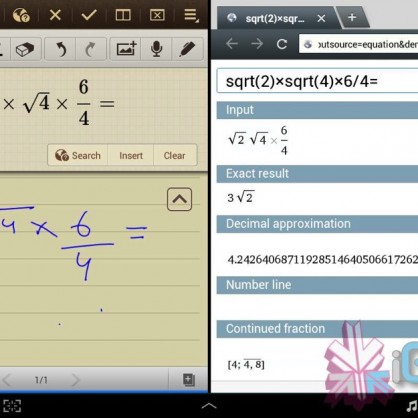 × √4 × 6/4 =
Search Insert Clear
4 × 6/4 =
1/1
sqrt(2)×sqr...
outsource=equation&der
sqrt(2)×sqrt(4)×6/4=
Input
√2 √4 × 6/4
Exact result
3√2
Decimal approximation
4.24264068711928514640506617262
Number line
Continued fraction
[4; 4, 8]